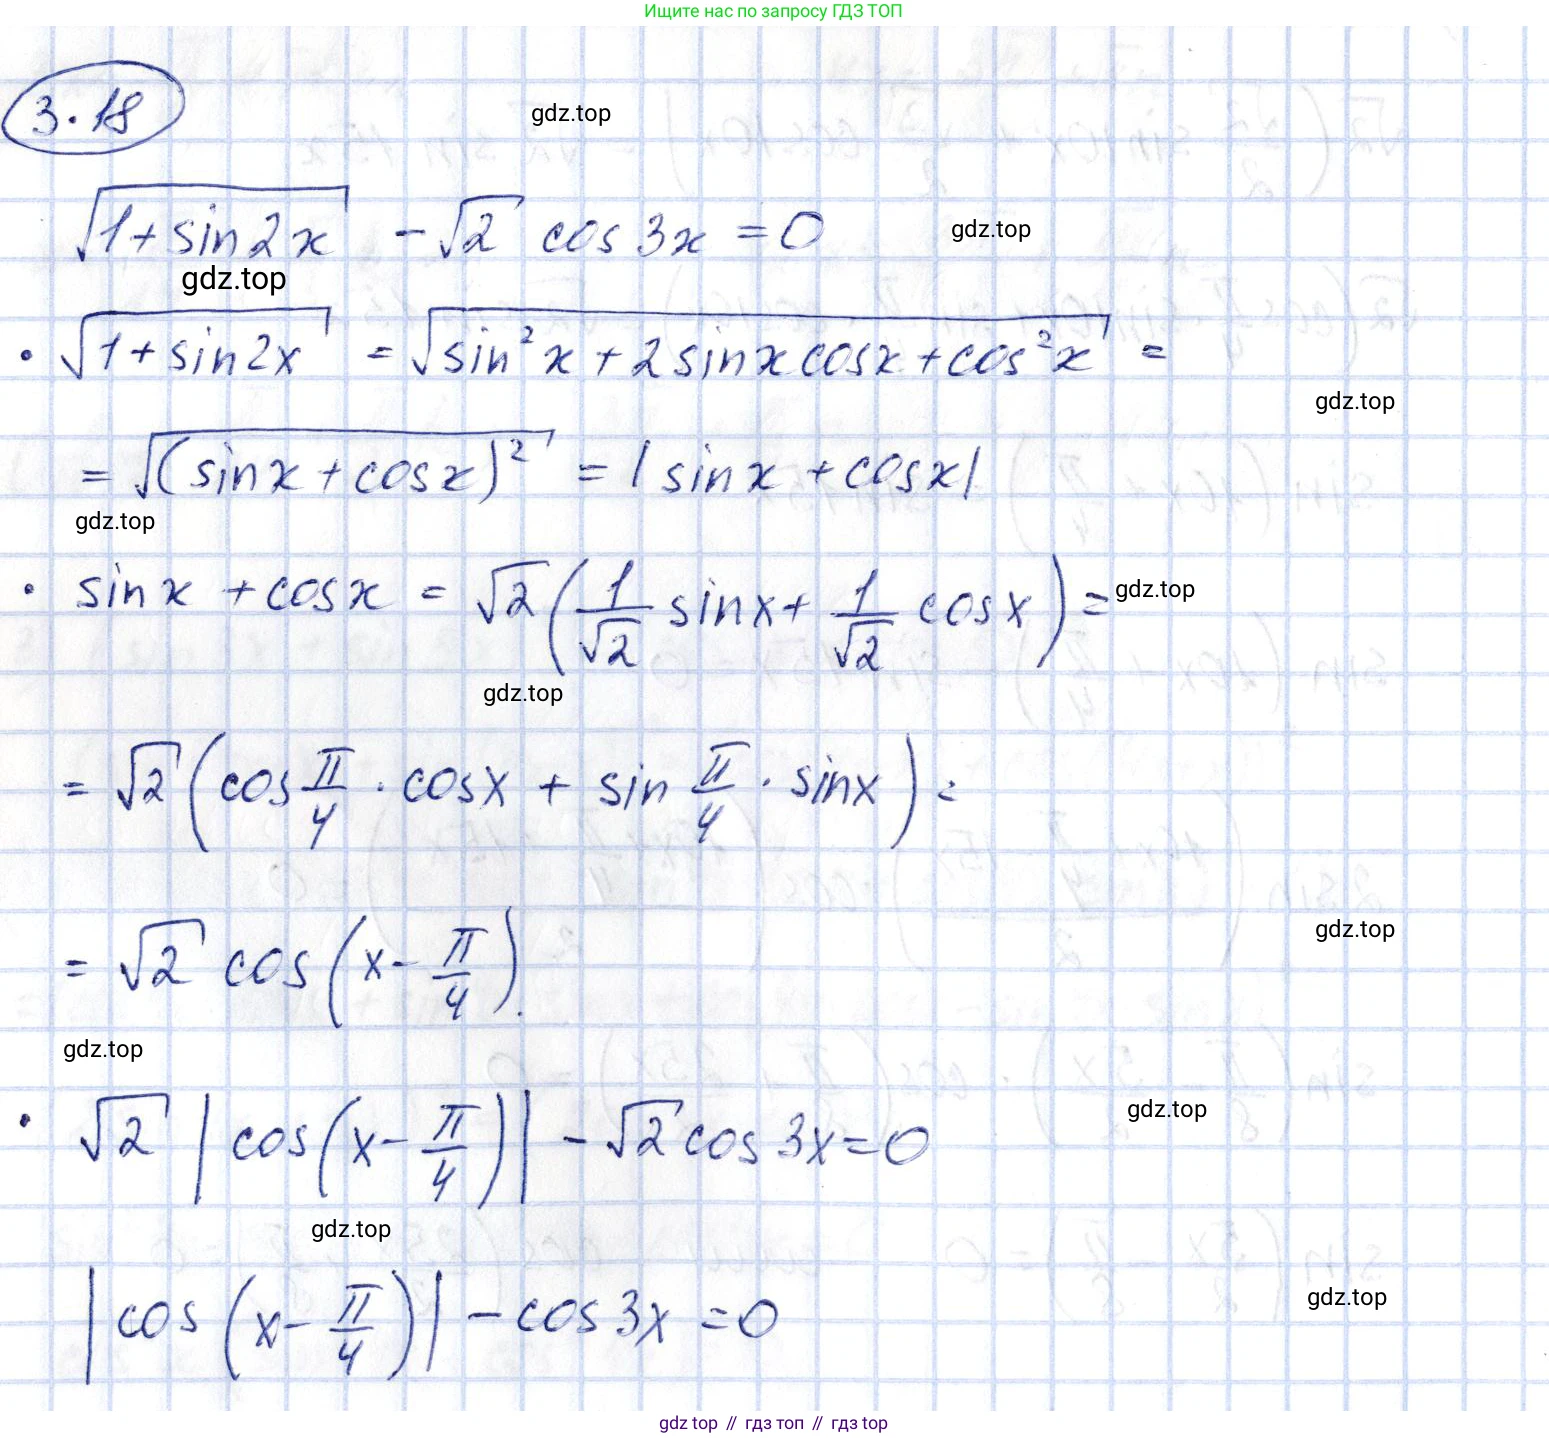 Ищите нас по запросу ГДЗ ТОП
3.18
gdz.top
√(1+sin2x) - √2 cos3x = 0
gdz.top
gdz.top
• √(1+sin2x) = √(sin²x + 2sinxcosx + cos²x) =
gdz.top
= √((sinx + cosx)²) = |sinx + cosx|
gdz.top
• sinx + cosx = √2(1/√2 sinx + 1/√2 cosx) =
gdz.top
gdz.top
= √2(cos π/4 · cosx + sin π/4 · sinx) =
gdz.top
= √2 cos(x - π/4).
gdz.top
gdz.top
• √2 |cos(x - π/4)| - √2 cos3x = 0
gdz.top
gdz.top
|cos(x - π/4)| - cos3x = 0
gdz top // гдз топ // гдз top